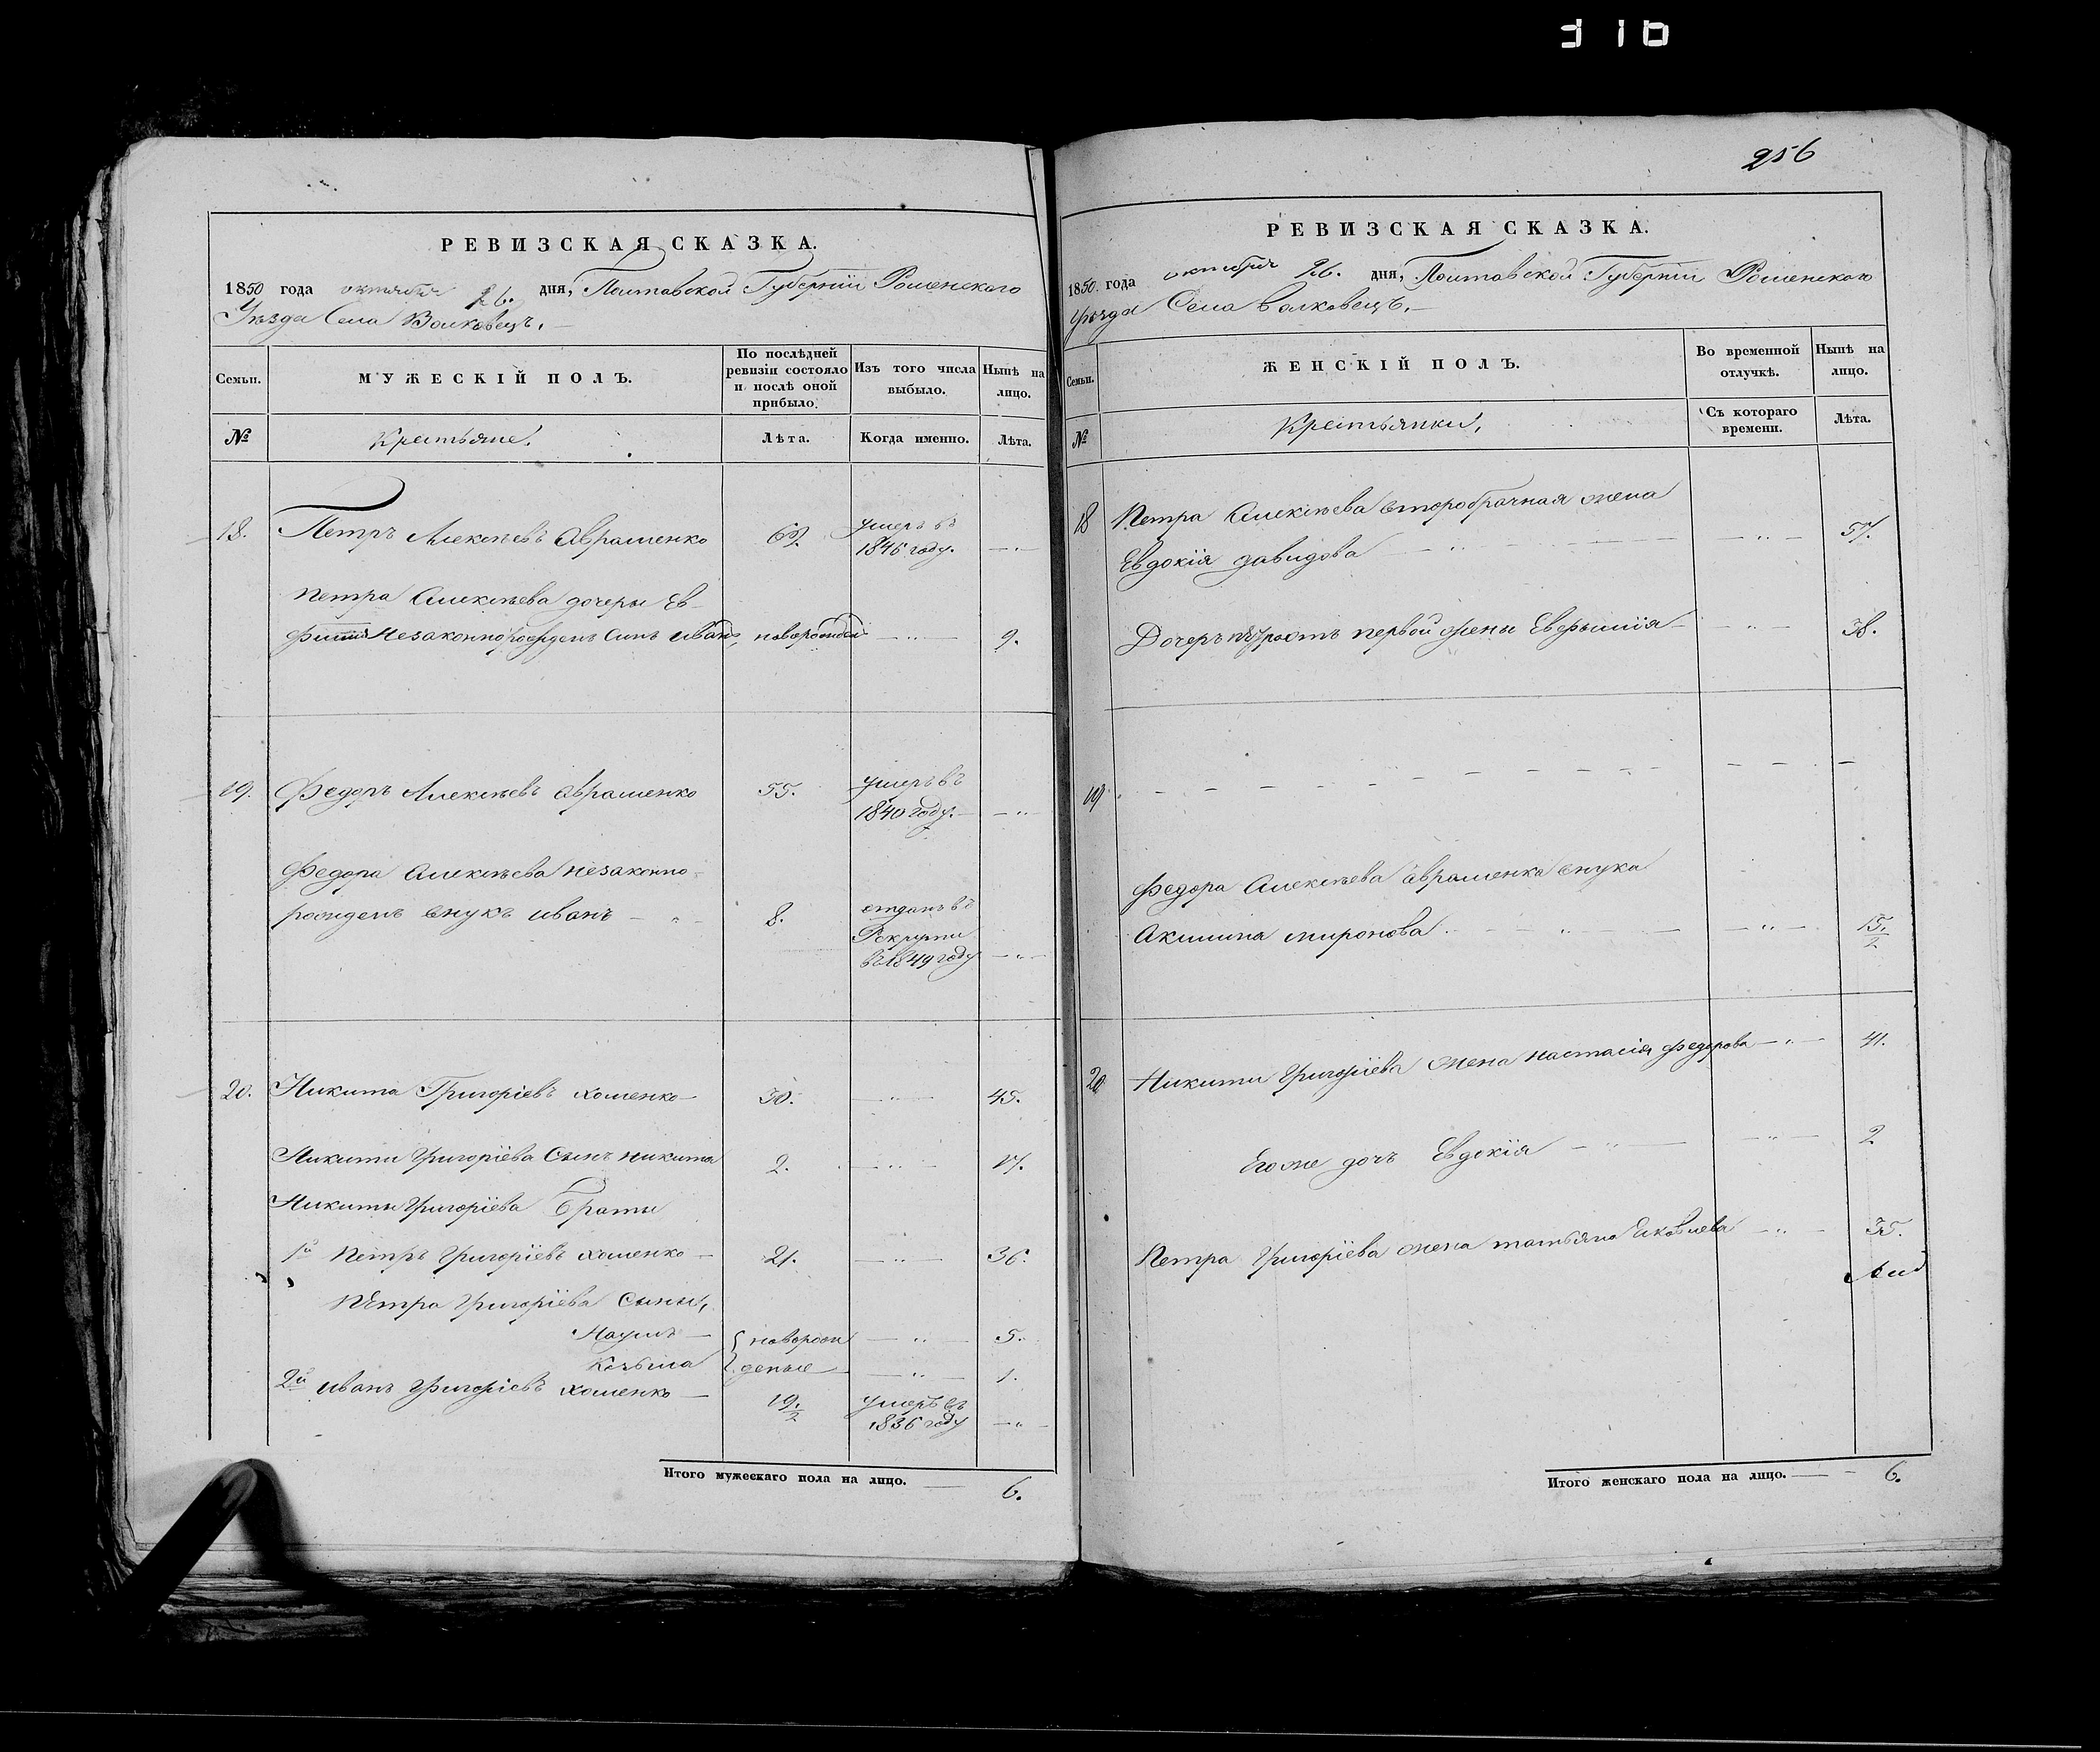 316
256
РЕВИЗСКАЯ СКАЗКА.
1850 года октября 26. дня, Полтавской Губерніи Роменского
Уѣзда Села Волковецъ.
Семьи. МУЖЕСКІЙ ПОЛЪ. По послѣдней ревизіи состояло и послѣ оной прибыло. Изъ того числа выбыло. Нынѣ на лицо.
№ Крестьяне. Лѣта. Когда именно. Лѣта.
18. Петръ Алексѣевъ Авраменко 69. умеръ въ
1846 году. — „ —
Петра Алексѣева дочеры Ев-
фиміи незаконнорожденъ Сынъ иванъ, новорожден — „ — 9.
19. Федоръ Алексѣевъ Авраменко 55. умеръ въ
1840 году. — „ —
Федора Алексѣева незаконно-
рожденъ внукъ иванъ — „ — 8. отданъ въ
Рекруты
въ 1849 году — „ —
20. Никита Григоріевъ Хоменко 30. — „ — 45.
Никиты Григоріева Сынъ никита 2. — „ — 17.
Никиты Григоріева Браты
1й Петръ Григоріевъ Хоменко 21. — „ — 36.
Петра Григоріева Сыны,
Наумъ — новорож — „ — 5.
Козьма деные — „ — 1.
2й иванъ Григоріевъ Хоменко — 19. 1/2 умеръ въ
1836 году — „
Итого мужескаго пола на лицо. — 6.
РЕВИЗСКАЯ СКАЗКА.
1850. года октября 26. дня, Полтавской Губерніи Роменского
Уѣзда Села Волковецъ. —
Семьи. ЖЕНСКІЙ ПОЛЪ. Во временной отлучкѣ. Нынѣ на лицо.
№ Крестьянки, Съ котораго времени. Лѣта.
18 Петра Алексѣева второбрачная жена
Евдокія давидова — „ — — „ — 57.
Дочеръ первой жены Евфимія — — „ — 38.
19. — — — — — —
Федора Алексѣева Авраменка внука
Акилина миронова. — „ — — „ — 15. 1/2
20 Никиты Григоріева жена настасія Федорова — „ — 41.
Егоже дочъ Евдокія — „ — — „ — 2
Петра Григоріева жена татьяна Яковлева — „ — 35.
Итого женскаго пола на лицо. — 6.